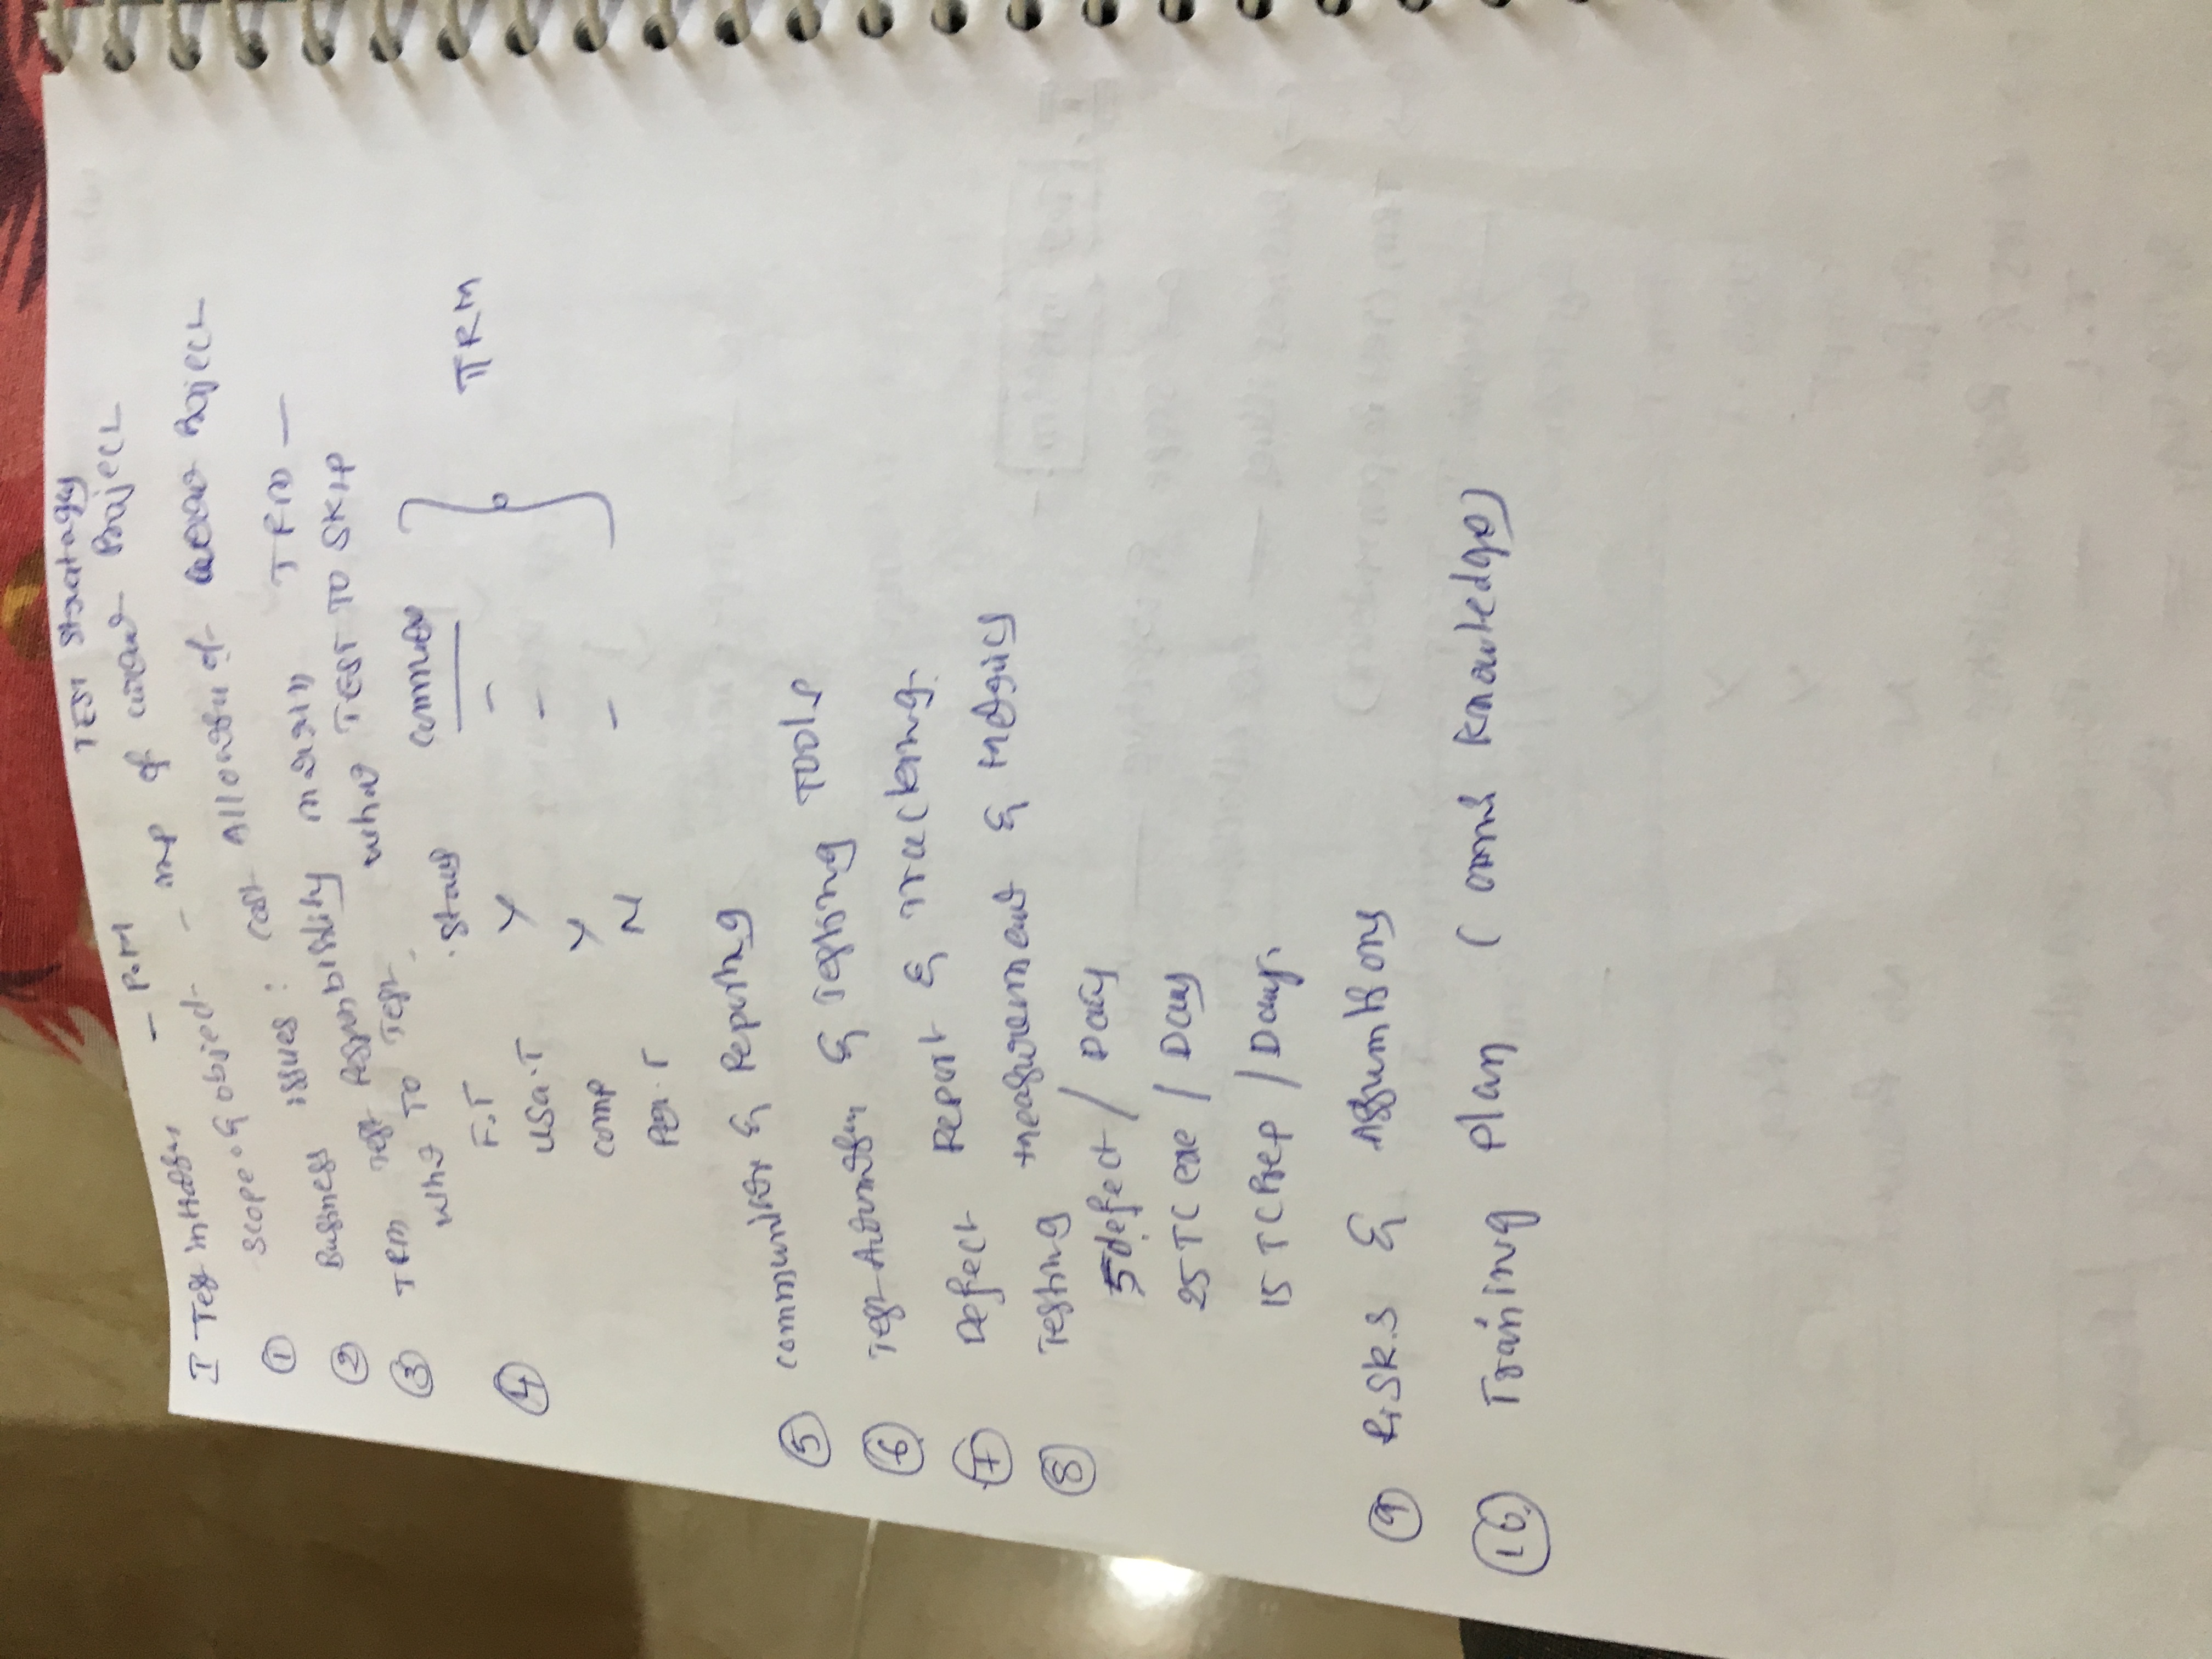 TEST Stratagy
I Test initiation - P.M
① Scope & object - imp of current Project
② Business issues : cost Allocation of current Project
③ TRM Test Responsibility matrix TRM —
what TO Test. what TEST TO SKIP
④ F.T Status comment
USa.T Y -
comp Y -
Per.T N -
TRM
⑤ communication & Reporting
⑥ Test Automation & Testing TOOLS
⑦ Defect Report & Tracking.
⑧ Testing measurement & metrics
5 defect / Day
25 TC exe / Day
15 TC Prep / Day.
⑨ Risk.s & Assumtions
⑩ Training Plan ( Knowledge)